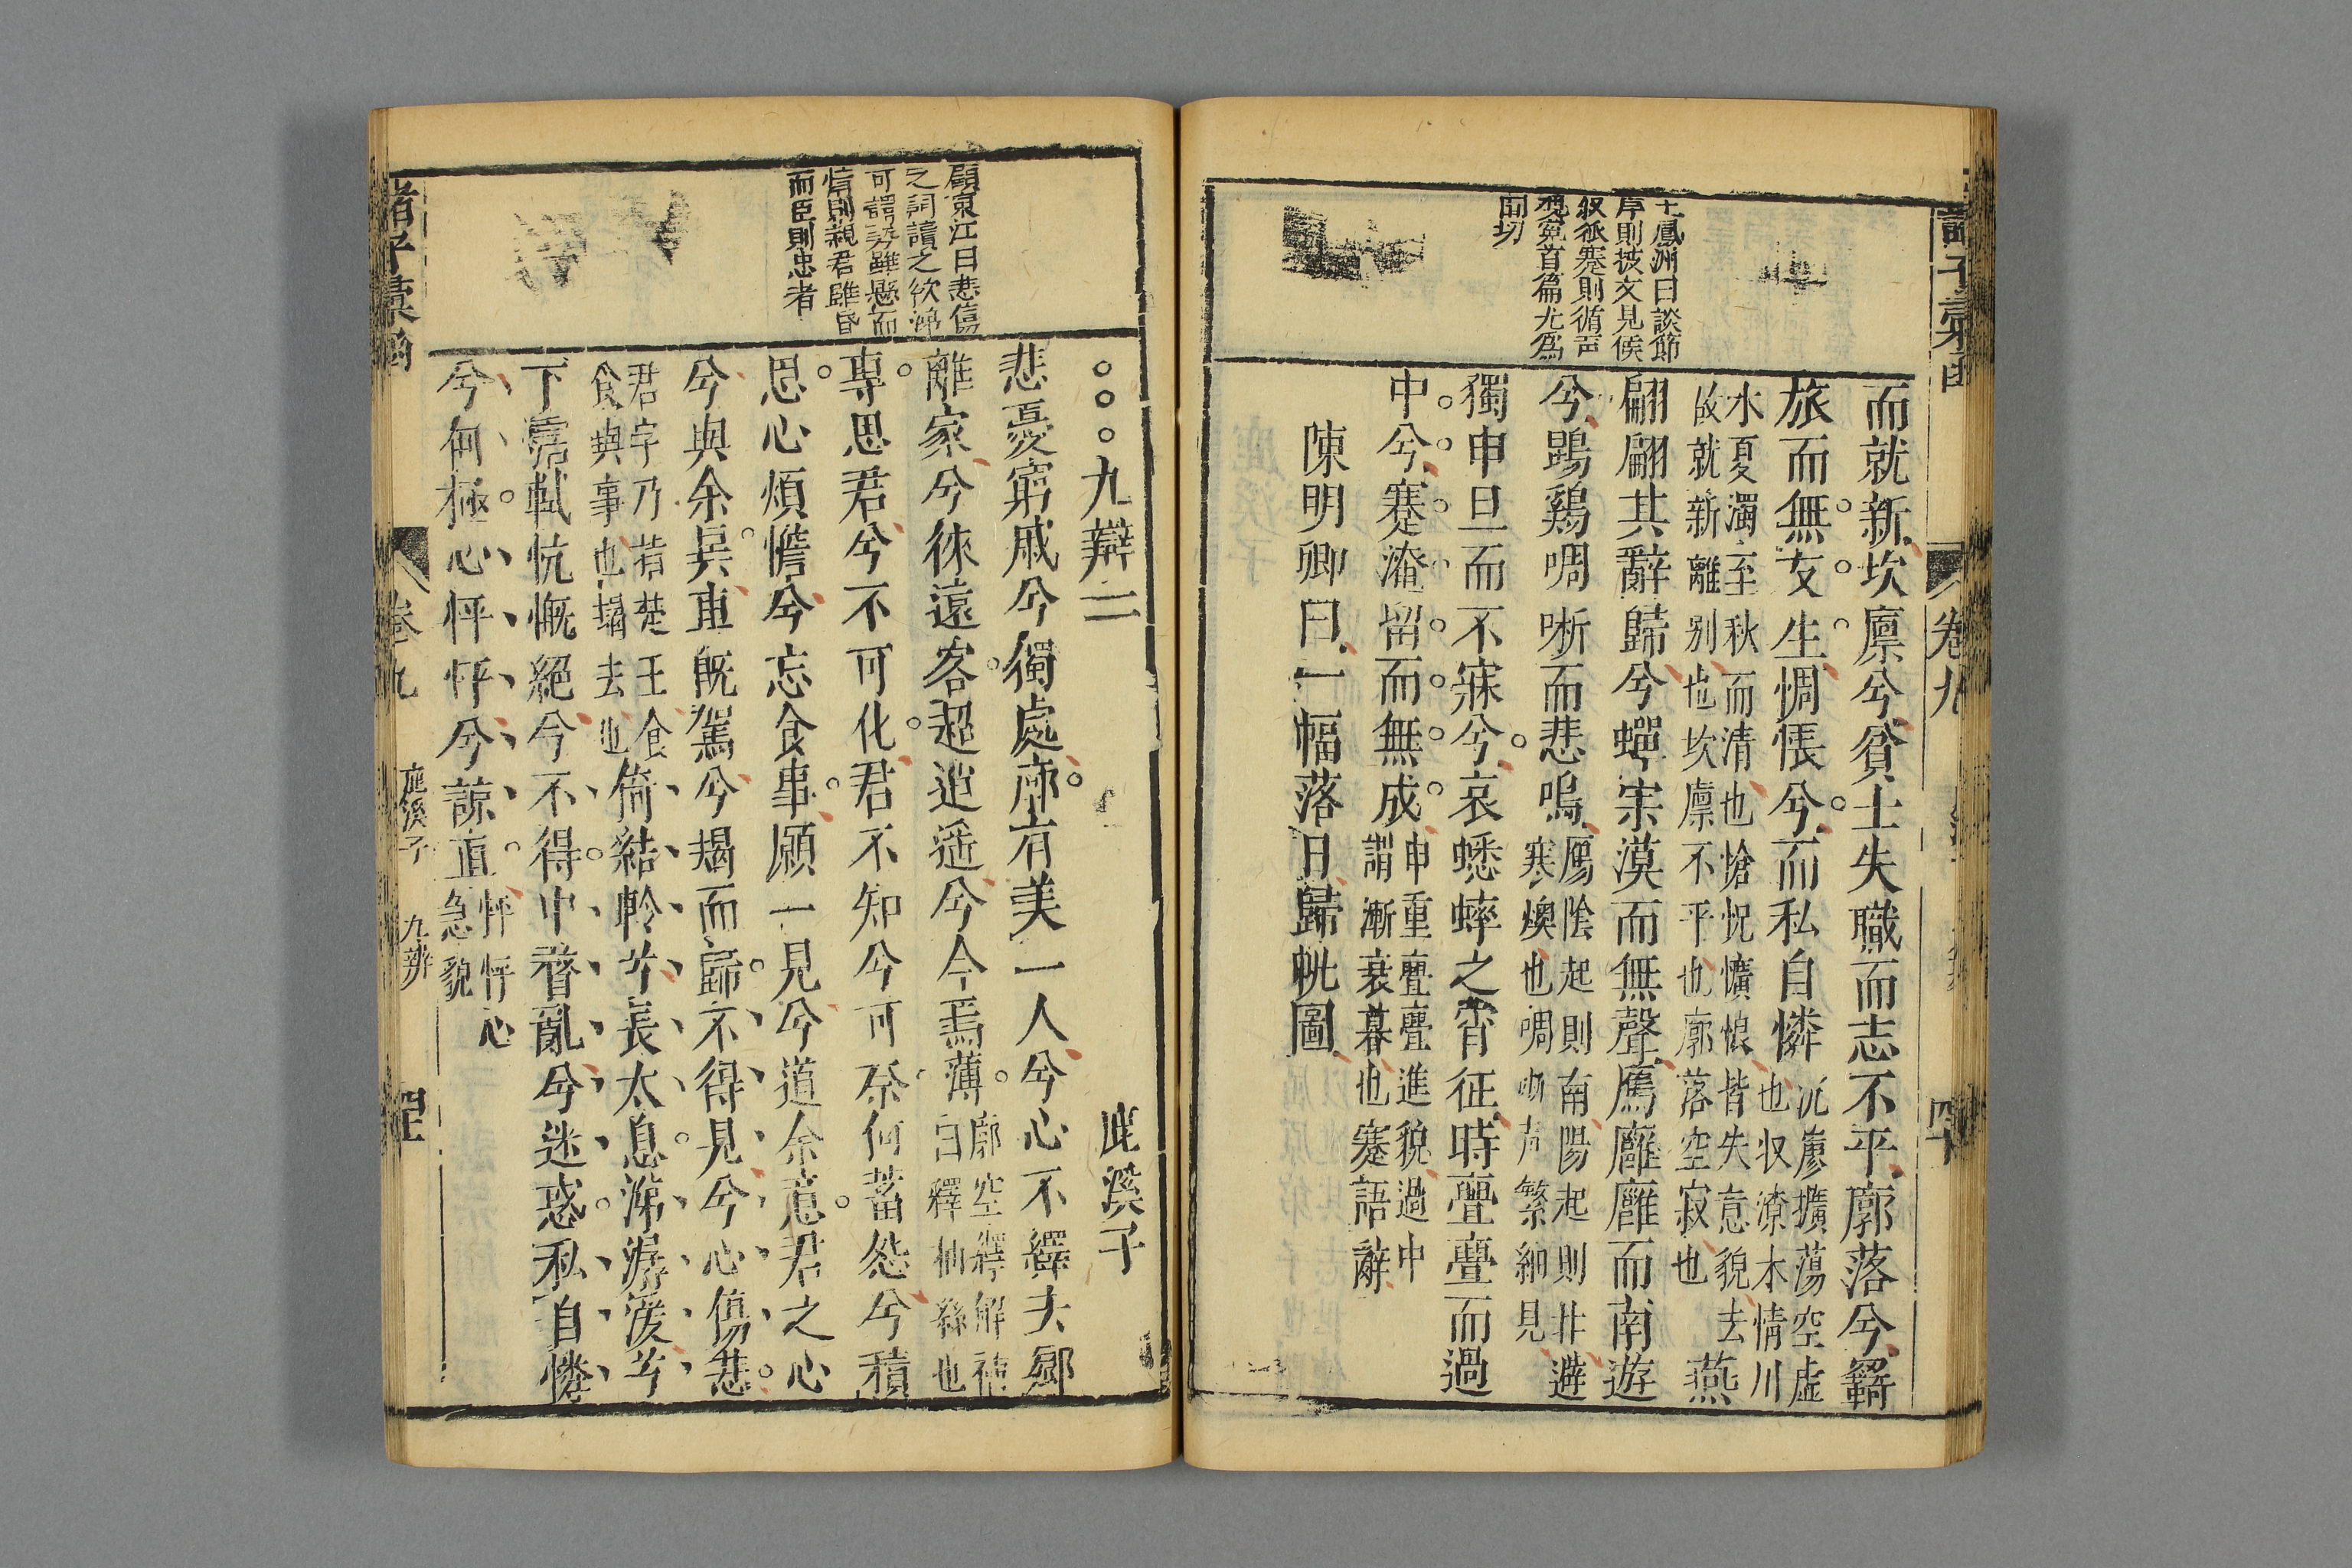 王鳳洲曰談節
序則披文見候
叙孤蹇則循声
魂寃首篇尤爲
開切
而就新坎廩兮貧士失職而志不平廓落兮羇
旅而無友生惆悵兮而私自憐沉廖擴蕩空虛
也収潦水情川
水夏濁至秋而清也愴怳懭悢皆失意貌去
故就新離别也坎廩不平也廓落空寂也燕
翩翩其辭歸兮蟬宋漠而無聲鴈廱廱而南遊
兮鵾鷄啁哳而悲鳴鴈陰起則南陽起則北避
寒燠也啁哳声繁細見
獨申旦而不寐兮哀蟋蟀之宵征時亹亹而過
中兮蹇淹留而無成申重亹亹進貌過中
謂漸衰暮也蹇語辭
陳明卿曰一幅落日歸帆圖
諸子彙函
卷九
四十
顧東江曰悲傷
之詞讀之欲涕
可謂勢雖懸而
情則親君雖昏
而臣則忠者
九辯二
鹿溪子
悲憂窮戚兮獨處廓有美一人兮心不繹去鄉
離家兮徠遠客超逍遥兮今焉薄廓空繹解
白釋抽絲也
專思君兮不可化君不知兮可柰何蓄怨兮積
思心煩憺兮忘食事願一見兮道余意君之心
兮與余異車既駕兮朅而歸不得見兮心傷悲
君字乃指楚王食
食與事也朅去也倚結軨兮長太息涕潺湲兮
下霑軾忼慨絕兮不得中瞀亂兮迷惑私自憐
兮何極心怦怦兮諒直怦怦心
急貌
諸子彙函
卷九
鹿溪子
九辨